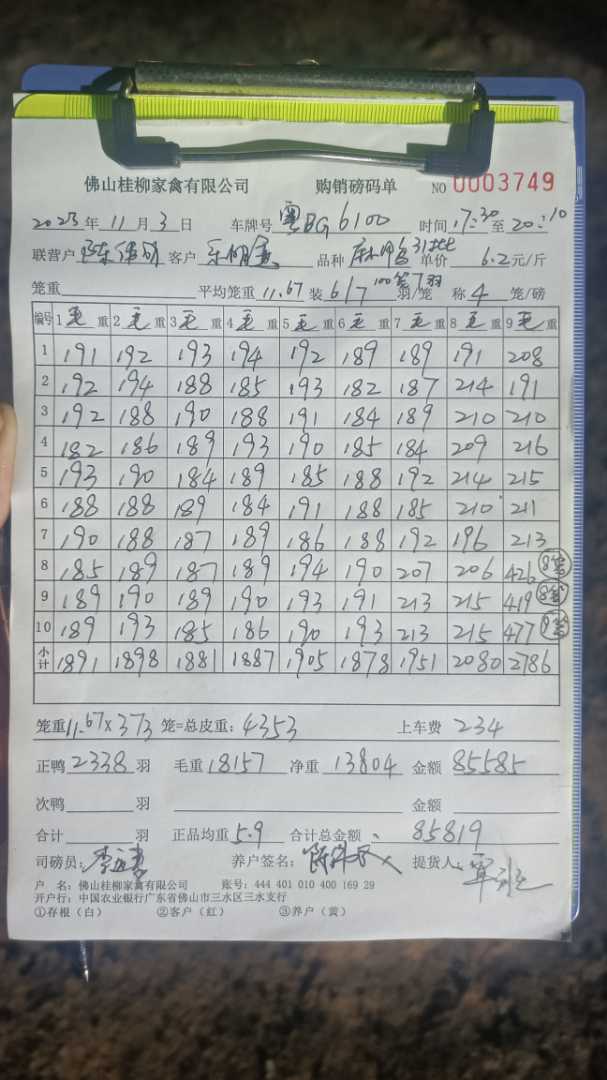 佛山桂柳家禽有限公司 购销磅码单 NO 0003749
2023年11月3日 车牌号 粤BG6100 时间 17:30 至 20:10
联营户 客户 品种 麻鸭 31批 单价 6.2元/斤
笼重 平均笼重 11.67 装 6/7 100笼7羽 羽/笼 称 4 笼/磅
编号 1毛重 2毛重 3毛重 4毛重 5毛重 6毛重 7毛重 8毛重 9毛重
1 191 192 193 194 192 189 189 191 208
2 192 194 188 185 193 182 187 214 191
3 192 188 190 188 191 184 189 210 210
4 182 186 189 193 190 185 184 209 216
5 193 190 184 189 185 188 192 214 215
6 188 188 189 184 191 188 185 210 211
7 190 188 187 189 186 188 192 196 213
8 185 189 187 189 194 190 207 206 426 8笼
9 189 190 189 190 193 191 213 215 419 8笼
10 189 193 185 186 190 193 213 215 477 9笼
小计 1891 1898 1881 1887 1905 1878 1951 2080 2786
笼重 11.67×373 笼=总皮重: 4353 上车费 234
正鸭 2338 羽 毛重 18157 净重 13804 金额 85585
次鸭 羽 金额
合计 羽 正品均重 5.9 合计总金额 85819
司磅员: 养户签名: 提货人:
户 名: 佛山桂柳家禽有限公司 账号: 444 401 010 400 169 29
开户行: 中国农业银行广东省佛山市三水区三水支行
①存根(白) ②客户(红) ③养户(黄)